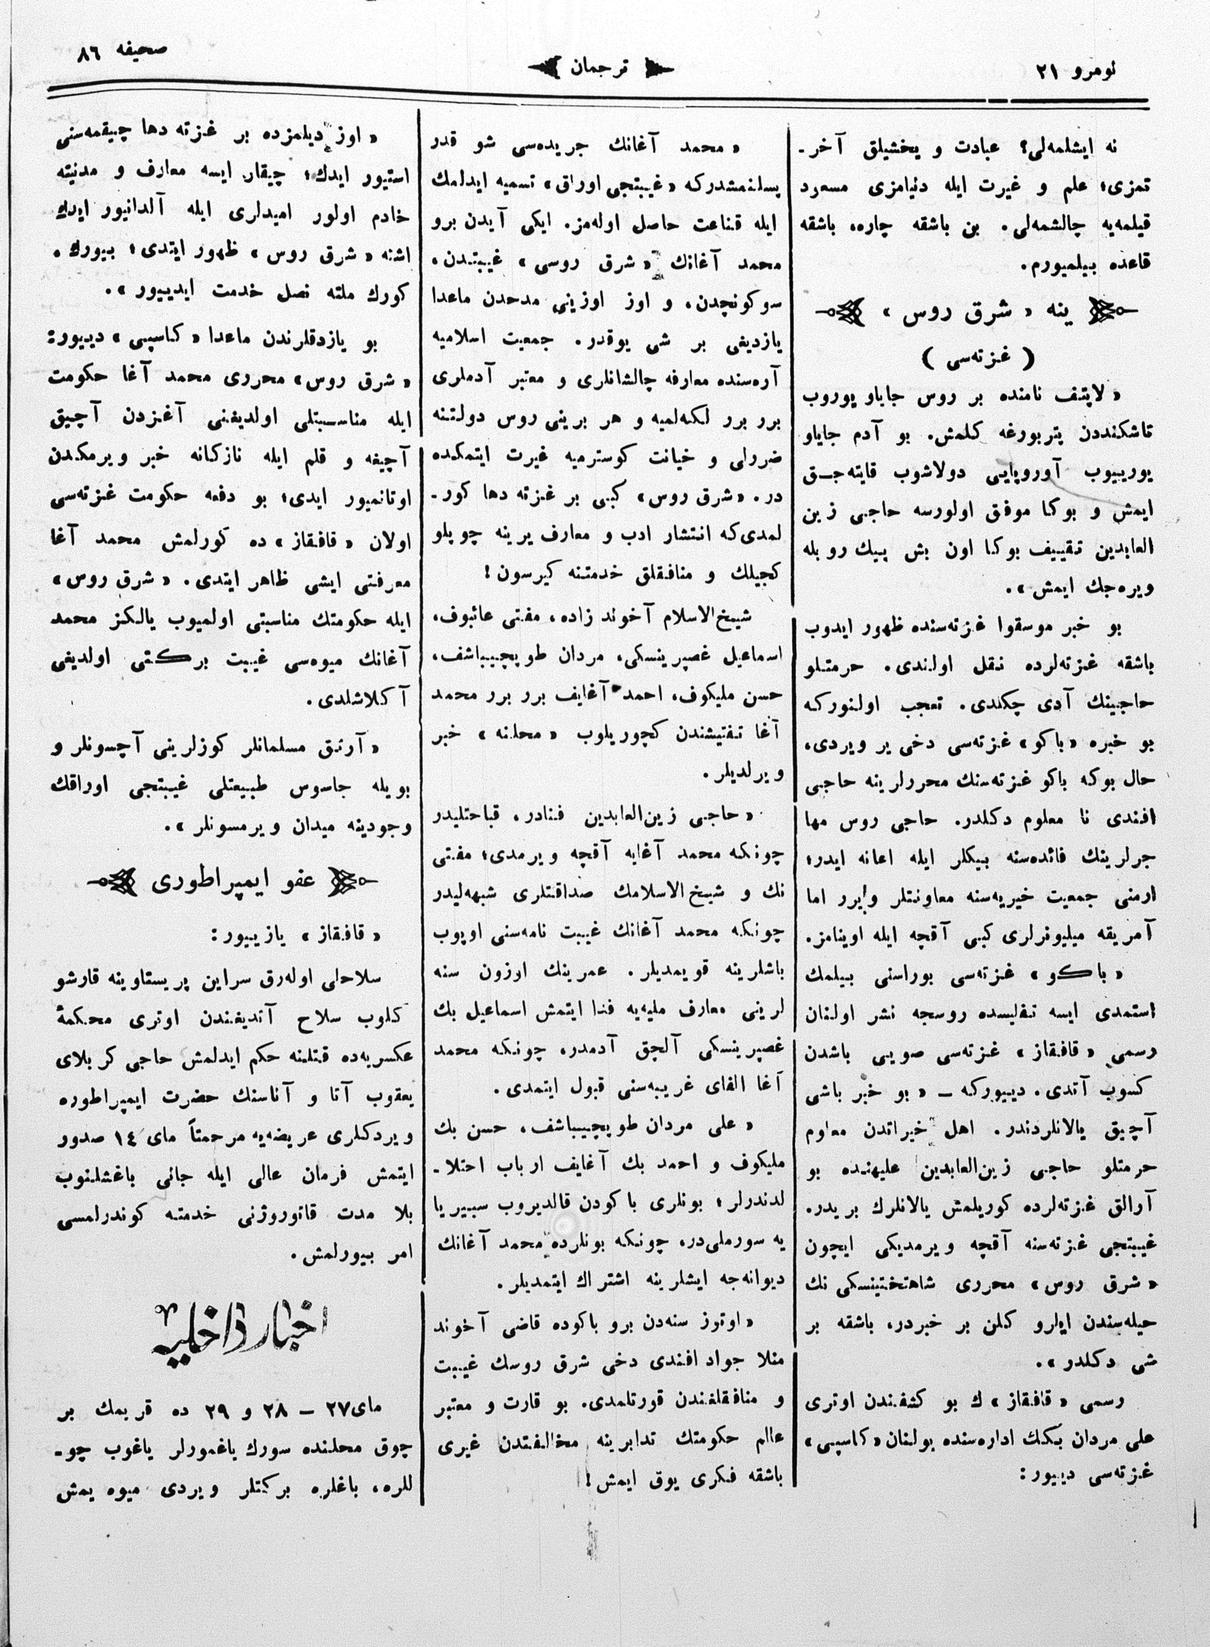 نومرو ٢١
ترجمان
صحیفه ٨٦
نه ایشلمه‌لی؟ عبادت و یخشیلق آخر-
تمزی؛ علم و غیرت ایله دنیامزی مسعود
قیلمه‌یه چالشمه‌لی. بن باشقه چاره، باشقه
قاعده بیلمیورم.
ینه « شرق روس »
( غزته‌سی )
« لاپتف نامنده بر روس جایاو یوروب
تاشکنددن پتربورغه کلمش. بو آدم جایاو
یورییوب آوروپایی دولاشوب قایته‌جـق
ایمش و بوکا موفق اولورسه حاجی زین
العابدین تقییف بوکا اون بش بیك روبله
ویره‌جك ایمش ».
بو خبر موسقوا غزته‌سنده ظهور ایدوب
باشقه غزته‌لرده نقل اولندی. حرمتلو
حاجینك آدی چکلدی. تعجب اولنورکه
بو خبره «باکو» غزته‌سی دخی یر ویردی،
حال بوکه باکو غزته‌سنك محررلرینه حاجی
افندی نا معلوم دکلدر. حاجی روس مها
جرلرینك فائده‌سنه بیکلر ایله اعانه ایدر؛
ارمنی جمعیت خیریه‌سنه معاونتلر ویرر اما
آمریقه میلیونرلری کبی آقچه ایله اوینامز.
« باکو » غزته‌سی بوراسنی بیلمك
استمدی ایسه تفلیسده روسجه نشر اولنان
رسمی « قافقاز » غزته‌سی صویی باشدن
کسوب آتدی. دییورکه — « بو خبر باشی
آچیق یالانلردندر. اهل خبراتدن معلوم
حرمتلو حاجی زین‌العابدین علیهنده بو
آرالق غزته‌لرده کوریلمش یالانلرك بریدر.
غیبتجی غزته‌سنه آقچه ویرمدیکی ایچون
« شرق روس » محرری شاهتختینسکی نك
حیله‌سندن ایلرو کلن بر خبردر، باشقه بر
شی دکلدر ».
رسمی « قافقاز » ك بو کشفندن اوتری
علی مردان بکك اداره‌سنده بولنان «کاسپی»
غزته‌سی دییور:
« محمد آغانك جریده‌سی شو قدر
پسلنمشدرکه «غیبتجی اوراق» تسمیه ایدلمك
ایله قناعت حاصل اوله‌مز. ایکی آیدن برو
محمد آغانك « شرق روسی » غیبتدن،
سوکونچدن، و اوز اوزینی مدحدن ماعدا
یازدیغی بر شی یوقدر. جمعیت اسلامیه
آره‌سنده معارفه چالشانلری و معتبر آدملری
برر برر لکه‌لمیه و هر برینی روس دولتنه
ضررلی و خیانت کوسترمیه غیرت ایتمکده
در. «شرق روس» کبی بر غزته دها کور-
لمدی‌که انتشار ادب و معارف یرینه چوپلو
کجیلك و منافقلق خدمتنه کیرسون!
شیخ‌الاسلام آخوند زاده، مفتی عائبوف،
اسماعیل غصپرینسکی، مردان طوپچیباشف،
حسن ملیکوف، احمد آغایف برر برر محمد
آغا تفتیشندن کچوریلوب « محلنه » خبر
ویرلدیلر.
« حاجی زین‌العابدین فنادر، قباحتلیدر
چونکه محمد آغایه آقچه ویرمدی؛ مفتی
نك و شیخ‌الاسلامك صداقتلری شبهه‌لیدر
چونکه محمد آغانك غیبت نامه‌سنی اوپوب
باشلرینه قویمدیلر. عمرینك اوزون سنه
لرینی معارف ملیه‌یه فدا ایتمش اسماعیل بك
غصپرینسکی آلچق آدمدر، چونکه محمد
آغا الفای غریبه‌سنی قبول ایتمدی.
« علی مردان طوپچیباشف، حسن بك
ملیکوف و احمد بك آغایف ارباب اختلا-
لدندرلر؛ بونلری باکودن قالدیروب سیبیریا
یه سورملی‌در، چونکه بونلرده محمد آغانك
دیوانه‌جه ایشلرینه اشتراك ایتمدیلر.
« اوتوز سنه‌دن برو باکوده قاضی آخوند
منلا جواد افندی دخی شرق روسك غیبت
و منافقلغندن قورتلمدی. بو قارت و معتبر
عالم حکومتك تدابرینه مخالفتدن غیری
باشقه فکری یوق ایمش!
« اوز دیلمزده بر غزته دها چیقمه‌سنی
استیور ایدك؛ چیقار ایسه معارف و مدنیته
خادم اولور امیدلری ایله آلدانیور ایدك
اشته « شرق روس » ظهور ایتدی؛ بیورك،
کورك ملته نصل خدمت ایدییور ».
بو یازدقلرندن ماعدا « کاسپی » دییور:
« شرق روس » محرری محمد آغا حکومت
ایله مناسبتلی اولدیغنی آغزدن آچیق
آچیغه و قلم ایله نازکانه خبر ویرمکدن
اوتانمیور ایدی؛ بو دفعه حکومت غزته‌سی
اولان « قافقاز » ده کورلمش محمد آغا
معرفتی ایشی ظاهر ایتدی. « شرق روس »
ایله حکومتك مناسبتی اولمیوب یالکز محمد
آغانك میوه‌سی غیبت برکتی اولدیغی
آکلاشلدی.
« آرتق مسلمانلر کوزلرینی آچسونلر و
بویله جاسوس طبیعتلی غیبتجی اوراقك
وجودینه میدان ویرمسونلر ».
عفو ایمپراطوری
« قافقاز » یازییور:
سلاحلی اوله‌رق سراین پریستاوینه قارشو
کلوب سلاح آتدیغندن اوتری محکمهٔ
عسکریه‌ده قتلنه حکم ایدلمش حاجی کربلای
یعقوب آتا و آناسنك حضرت ایمپراطوره
ویردکلری عریضه‌یه مرحمتاً مای ١٤ صدور
ایتمش فرمان عالی ایله جانی باغشلنوب
بلا مدت قاتوروژنی خدمته کوندرلمسی
امر بیورلمش.
اخبار داخلیه
مای ٢٧ — ٢٨ و ٢٩ ده قریمك بر
چوق محلنده سورك یاغمورلر یاغوب چو-
للره، باغلره برکتلر ویردی میوه یمش